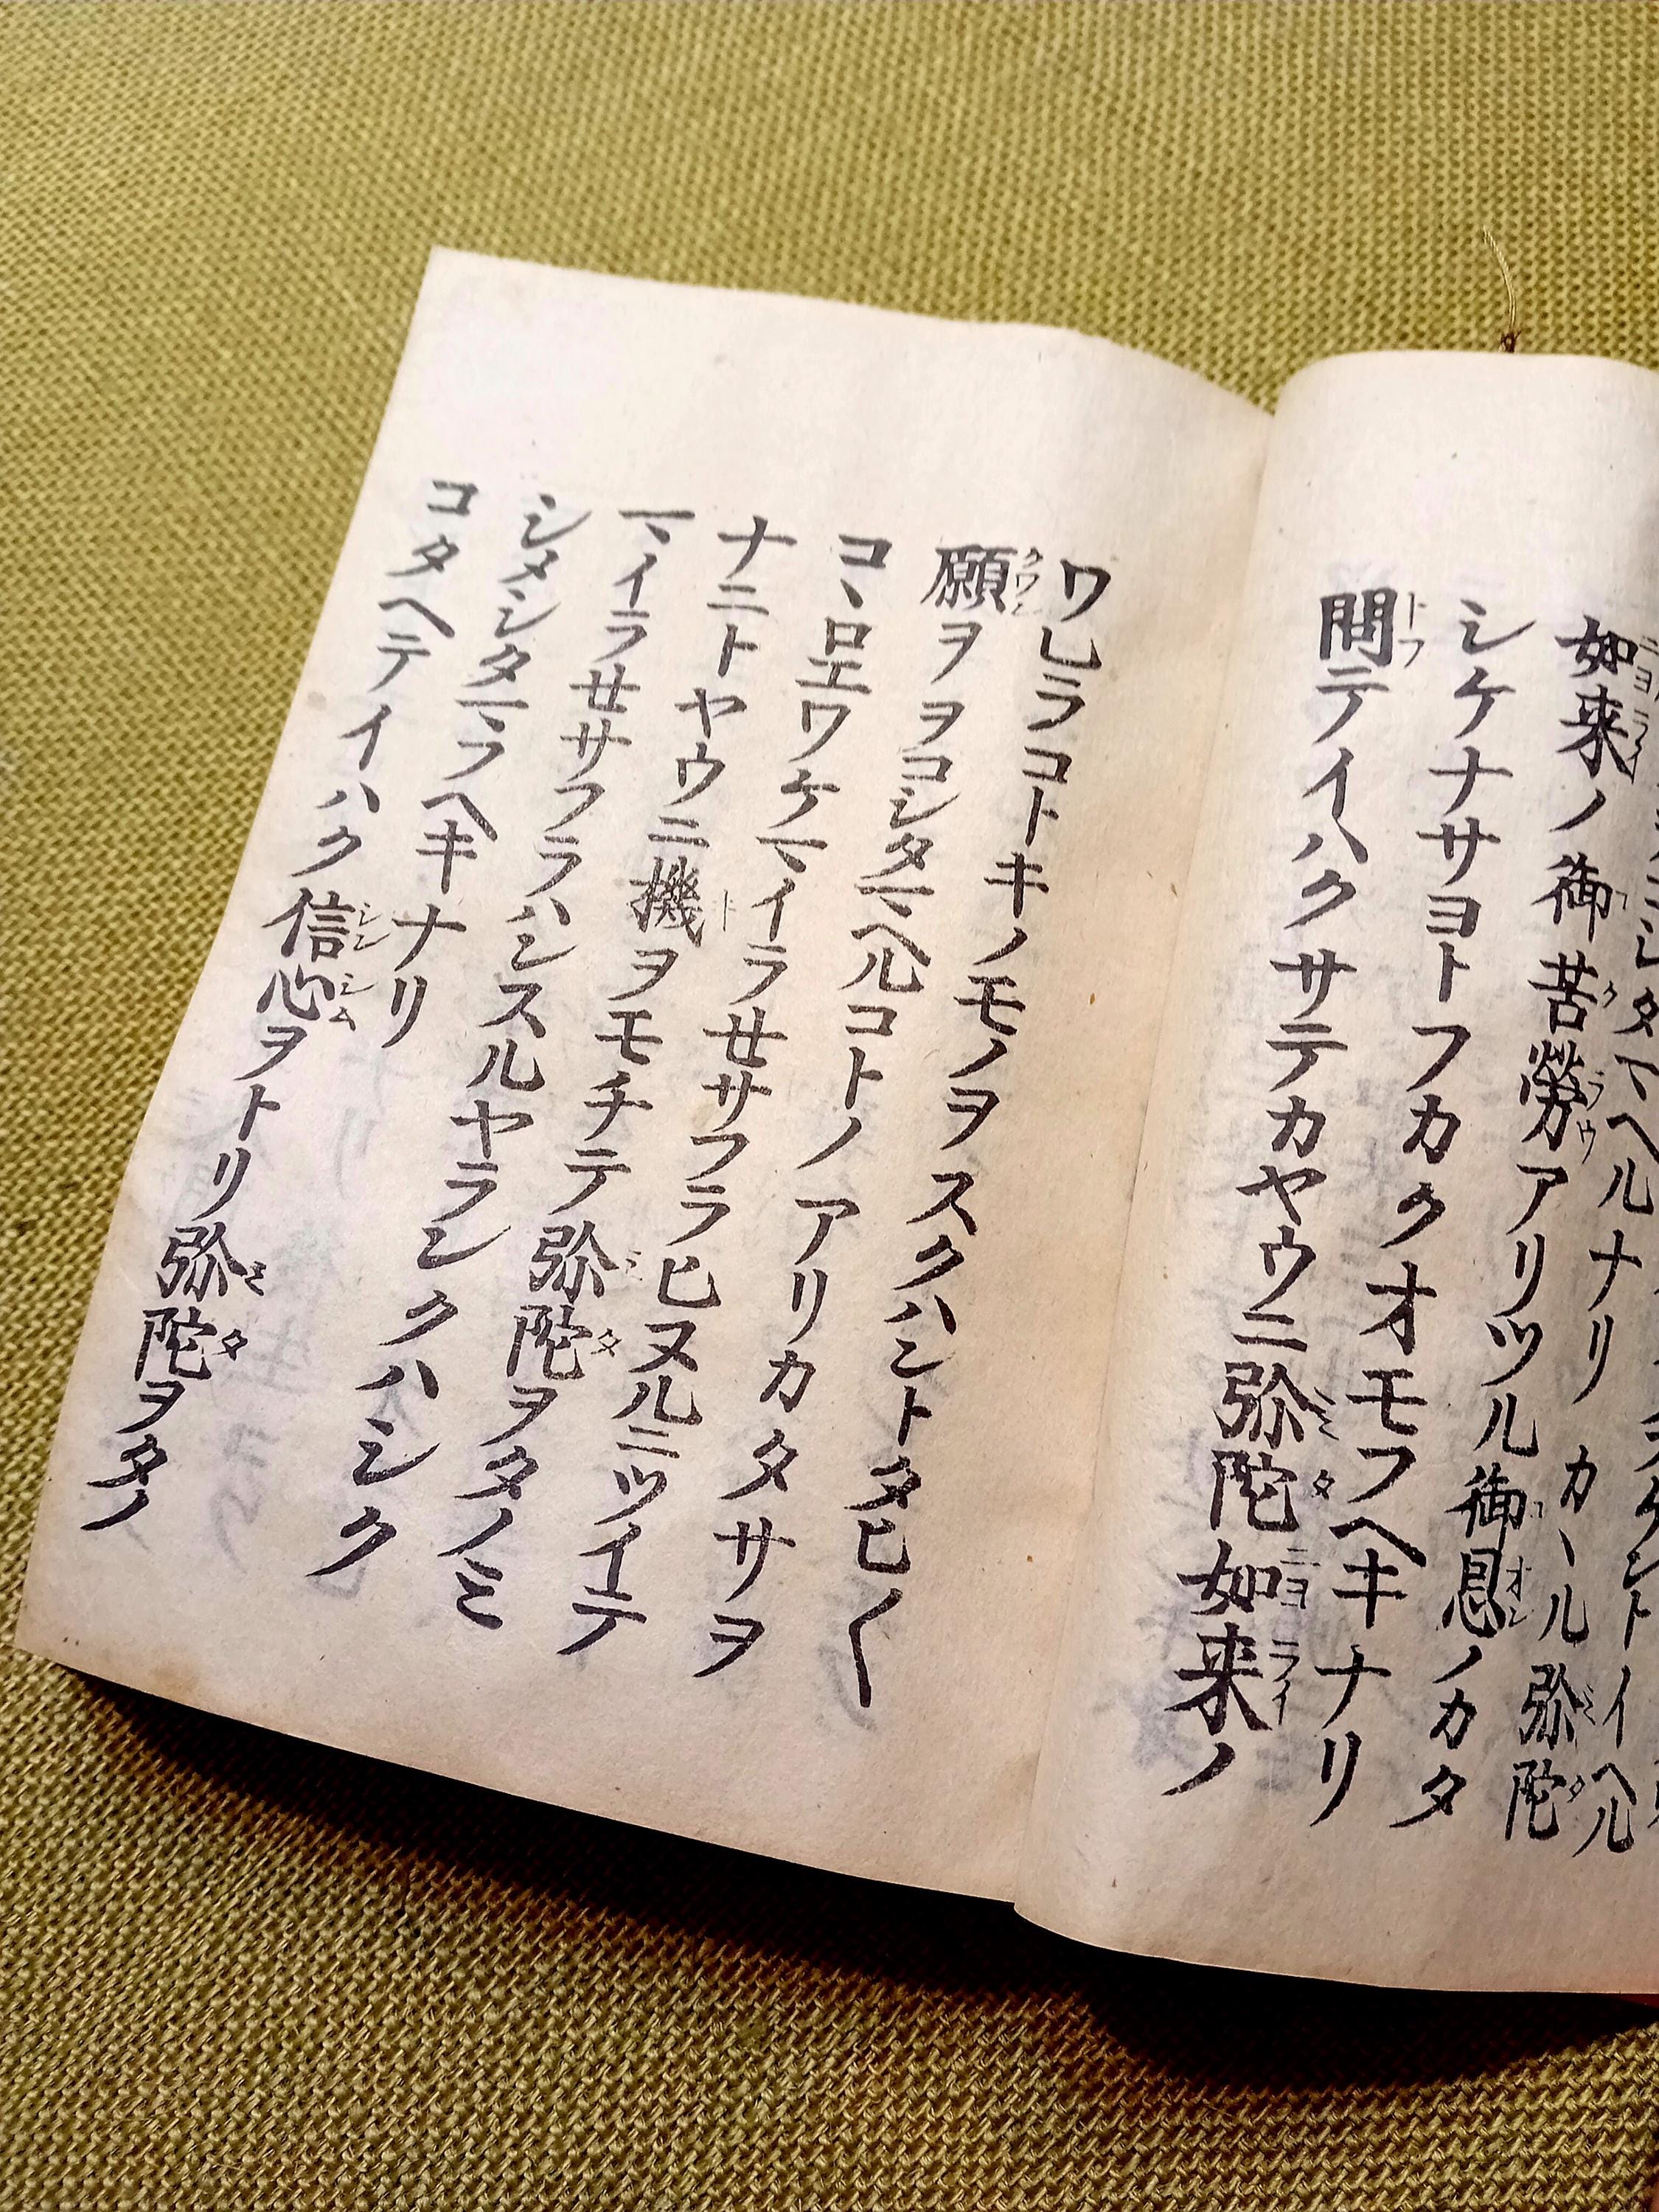 ケントイヘル
シタマヘルナリカヽル弥陀
如来ノ御苦勞アリツル御恩ノカタ
シケナサヨトフカクオモフヘキナリ
問テイハクサテカヤウニ弥陀如来ノ
ワレラコトキノモノヲスクハントタヒ〱
願ヲヲコシタマヘルコトノアリカタサヲ
コヽロエワケマイラセサフラヒヌルニツイテ
ナニトヤウニ機ヲモチテ弥陀ヲタノミ
マイラセサフラハンスルヤランクハシク
シメシタマフヘキナリ
コタヘテイハク信心ヲトリ弥陀ヲタノ